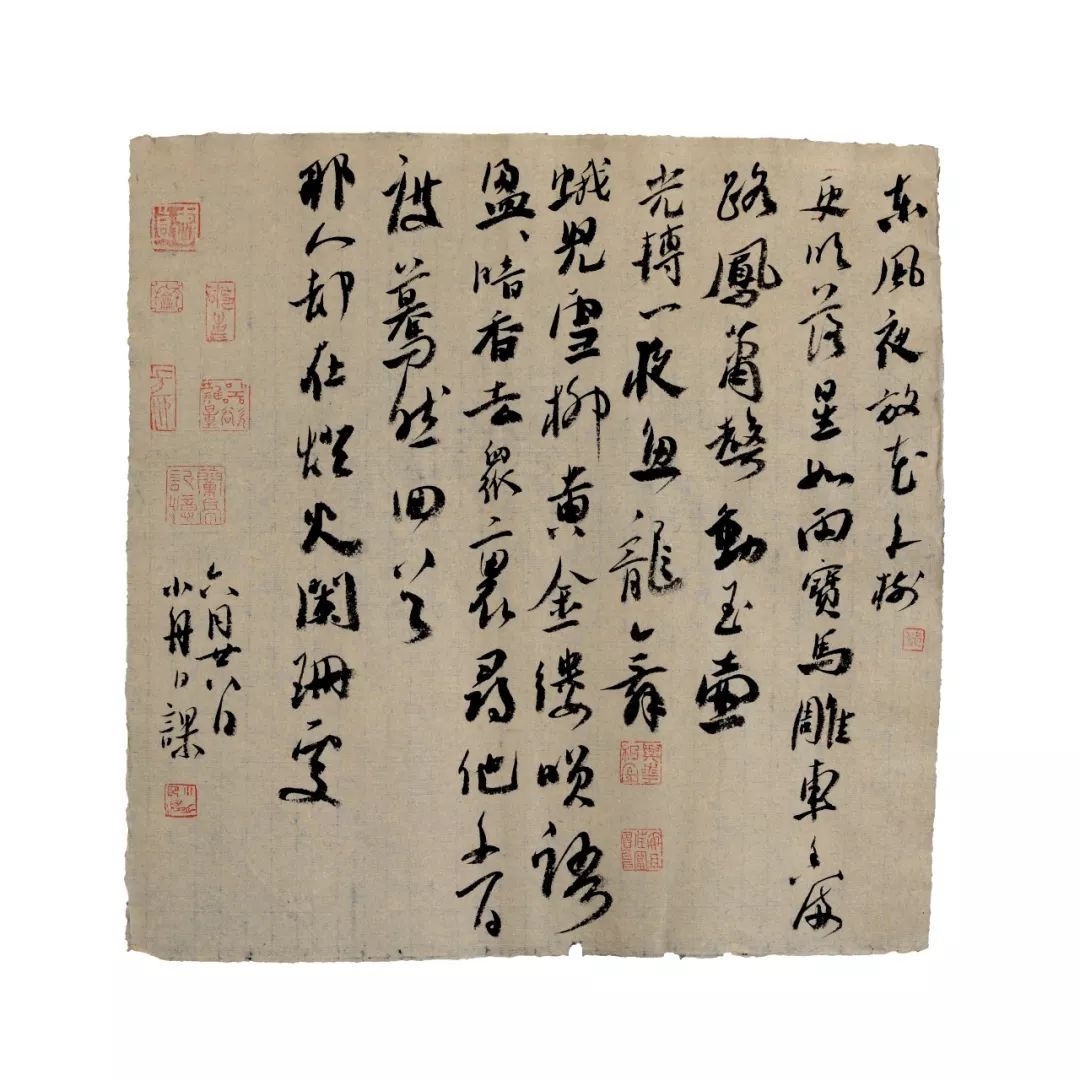 東風夜放花千樹
更吹落星如雨寶馬雕車香滿
路鳳簫聲動玉壺
光轉一夜魚龍舞
蛾兒雪柳黃金縷笑語
盈、暗香去衆裏尋他千百
度驀然回首
那人却在燈火闌珊處
六月廿八日
小舟日課
蘭亭記憶